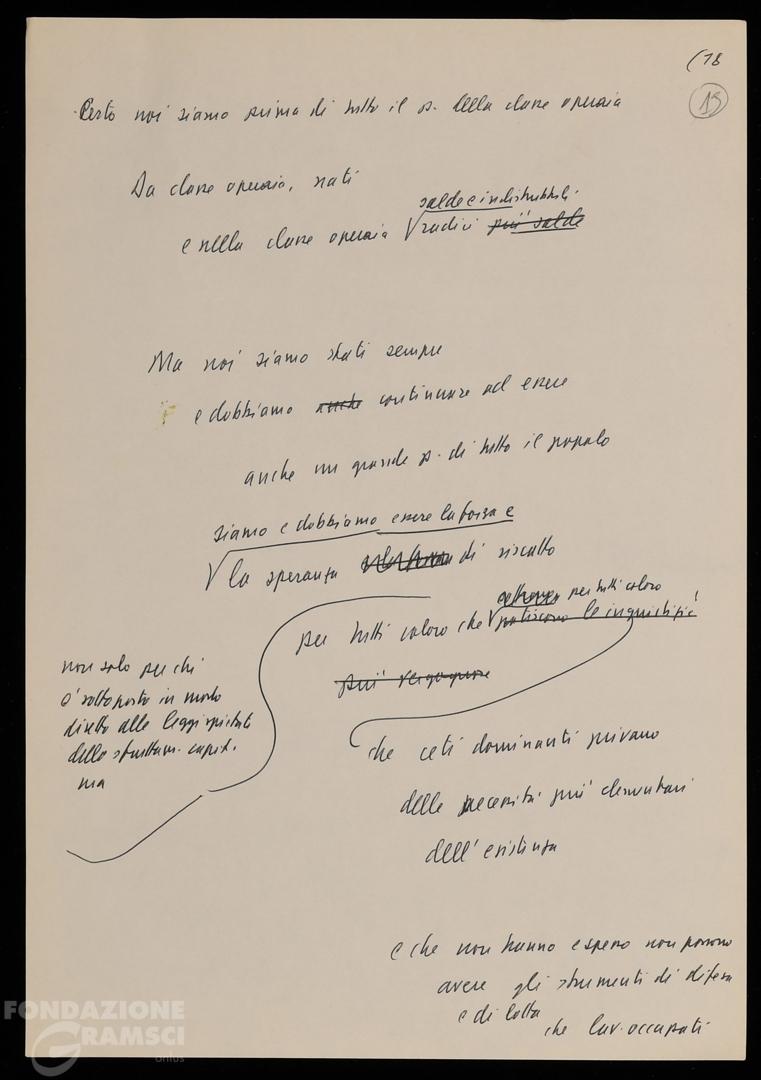 (18
19
Certo noi siamo prima di tutto il p. della classe operaia
Da classe operaia, nati
salde e indistruttibili
e nella classe operaia radici più salde
Ma noi siamo stati sempre
e dobbiamo anche continuare ad essere
anche un grande p. di tutto il popolo
siamo e dobbiamo essere la forza e
la speranza di riscatto
per tutti coloro
per tutti coloro che patiscono le ingiustizie
più vergognose
non solo per chi
e' sottoposto in modo
diretto alle leggi spietate
dello sfruttam. capit.
ma
che ceti dominanti privano
delle necessità più elementari
dell'esistenza
e che non hanno e spesso non possono
avere gli strumenti di difesa
e di lotta
che lav. occupati
FONDAZIONE
GRAMSCI
onlus